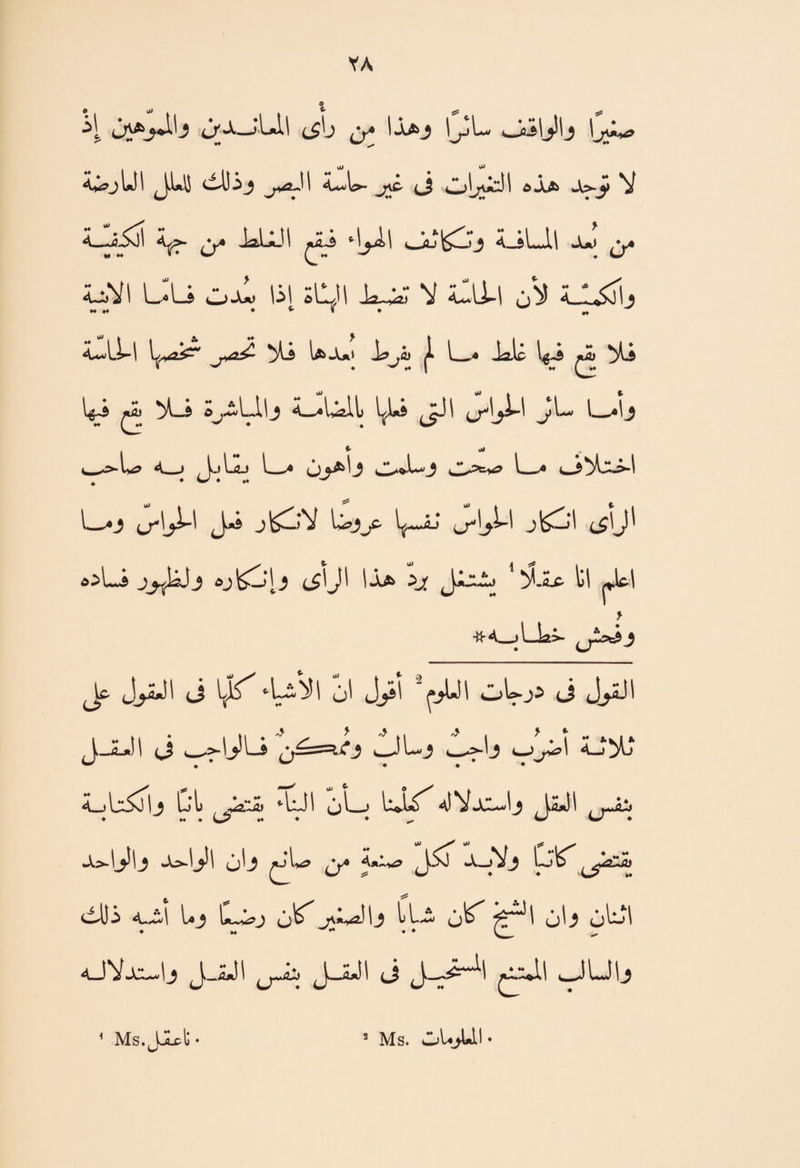 ٢٨
صغيرا والواقف سائرا وهذا من باب المعاندين والمموّهين إذ
لا توجد هذه التغيّرات في غير حاسّة البصر وذلك لعلل العارضة
من بُعد المسافة وتكاثف الهواء فيقع الغلط من جهة الكيفيّة
والكمّيّة لأنّ الحاسّة لا تضبط إذا بعُدت فأما الأنيّة
فلا يقع فيها غلط ما لم يفرط بُعدها فلا الحاسّة
وأما سائر الحواسّ التي فعلها بالمضامّة والمباشرة فلا يقع فيها
اختلاف ما صحّت وسلمت وأهون ما يقابل به صاحب
الرأي إنكار الحواسّ نفسها لإنكار الحواسّ وما
أعلم أنّا عقلًا¹ هذا الرأي وإنكاره ولظهور فساده
وفحش خطابه *
القول في درجات العلوم² أقول أنّ الأشياء كلّها في العقول على
ثلاثة أضرب واجب وسالب وممكن فالواجب في العقل
بنفس العقل واستدلاله كعلمنا بأنّ البناء يقتضى بانيًا والكتابة
يقتضى كاتبًا ولا بدّ لكلّ صنعة من صانع وأن الواحد والواحد
اثنان وأن الشيخ كان شابًّا والصغير كان رضيعًا وما أشبه ذلك
والسالب الممتنع المستحيل في العقل بنفس العقل واستدلاله
¹ Ms. تاعقل • ² Ms. العلومات •